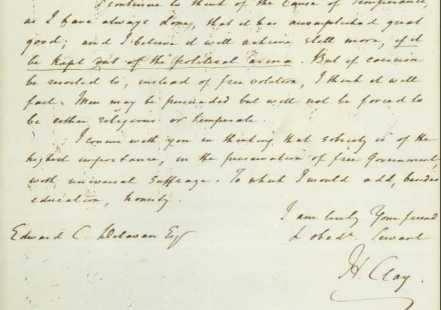 I continue to think of the Cause of Temperance,
as I have always done, that it has accomplished great
good; and I believe it will achieve still more, if it
be kept out of the political arena. But if coercion
be resorted to, instead of free volition, I think it will
fail. Men may be persuaded but will not be forced to
be either religious or temperate.
I concur with you in thinking that sobriety is of the
highest importance, in the preservation of free Government,
with universal suffrage. To which I would add, besides
education, honesty.
I am truly Your friend
& obedt. Servant
H. Clay.
Edward C. Delavan Esqr